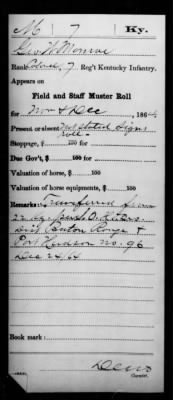 M 7 Ky.
Geo W Monroe
Rank Colonel, 7 Reg't Kentucky Infantry.
Appears on
Field and Staff Muster Roll
for Nov & Dec, 1864
Present or absent Not stated
roll.
Stoppage, $ 100 for
Due Gov't, $ 100 for
Valuation of horse, $ 100
Valuation of horse equipments, $ 100
Remarks: Transferred from
Baton Rouge &
Port Hudson No. 96
Dec 24/64
Book mark:
Dews
Copyist.